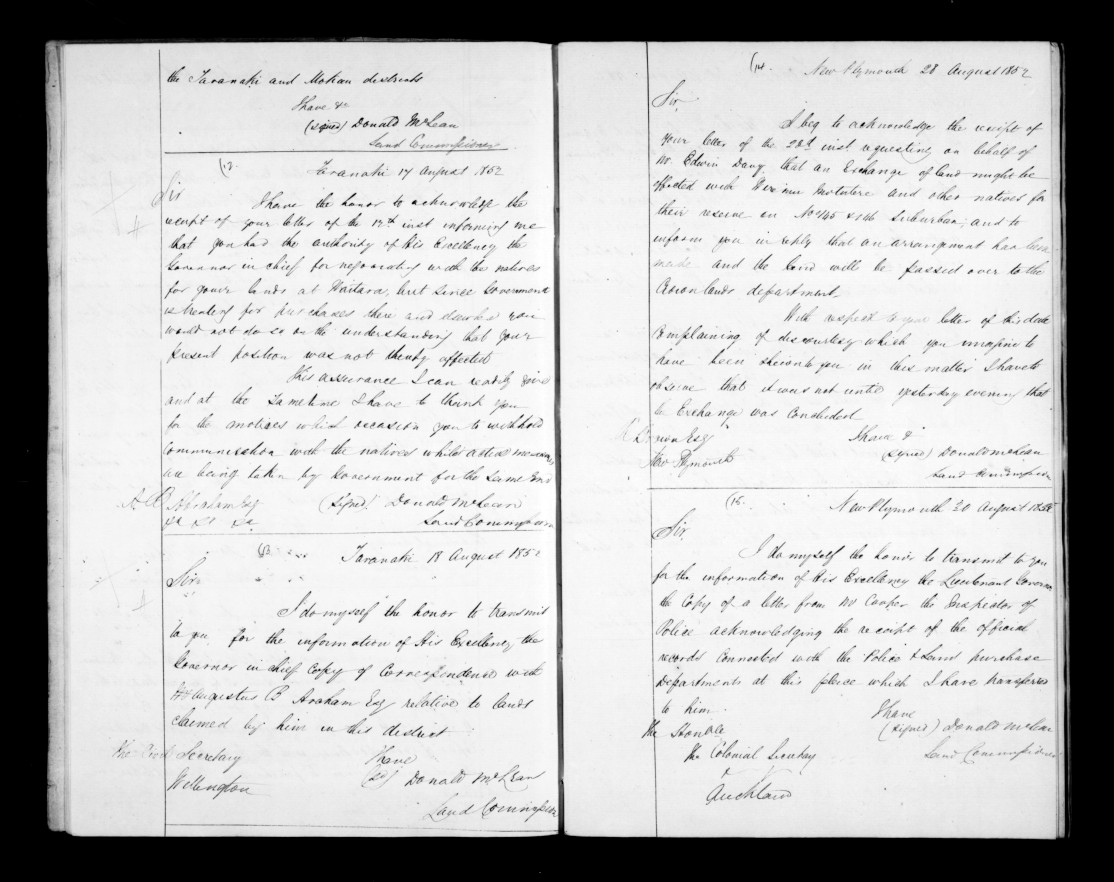 the Taranaki and Mokau districts
I have &c
(signed) Donald McLean
Land Commissioner
(12.
Taranaki 17 August 1852
Sir
I have the honor to acknowledge the
receipt of your letter of the 12th inst informing me
that you had the authority of His Excellency the
Governor in chief for negociating with the natives
for your lands at Waitara, but since Government
is treating for purchases there and elsewhere you
would not do so on the understanding that your
present position was not thereby affected
This assurance I can readily give
and at the Sametime I have to thank you
for the motives which occasion you to withhold
communication with the natives whilst active measures
are being taken by Government for the same end
A. B. Abraham Esq
(signed) Donald McLean
Land Commissioner
(13.
Taranaki 18 August 1852
Sir
I do myself the honor to transmit
to you for the information of His Excellency the
Governor in chief Copy of Correspondence with
Augustus B Abraham Esq relative to lands
claimed by him in this district
The Civil Secretary
Wellington
I have
(sd) Donald McLean
Land Commissioner
(14.
New Plymouth 28 August 1852
Sir
I beg to acknowledge the receipt of
your letter of the inst requesting on behalf of
Mr Edwin Davy that an Exchange of land might be
effected with and other natives for
their reserve on No 145 & 146 Suburban; and to
inform you in reply that an arrangement has been
made and the land will be passed over to the
Crown lands department.
With respect to your letter of this date
Complaining of discourtesy which you imagine to
have been shewn to you in this matter I have to
observe that it was not until yesterday evening that
the Exchange was Concluded
Esq
New Plymouth
I have &
(signed) Donald McLean
Land Commissioner
(15.
New Plymouth August 1852
Sir,
I do myself the honor to transmit to you
for the information of His Excellency the Lieutenant Governor
the Copy of a letter from Mr Cooper the Inspector of
Police acknowledging the receipt of the official
records Connected with the Police & Land purchase
Departments at this place which I have transferred
to him.
I have
The Honble
(signed) Donald McLean
the Colonial Secretary
Land Commissioner
Auckland